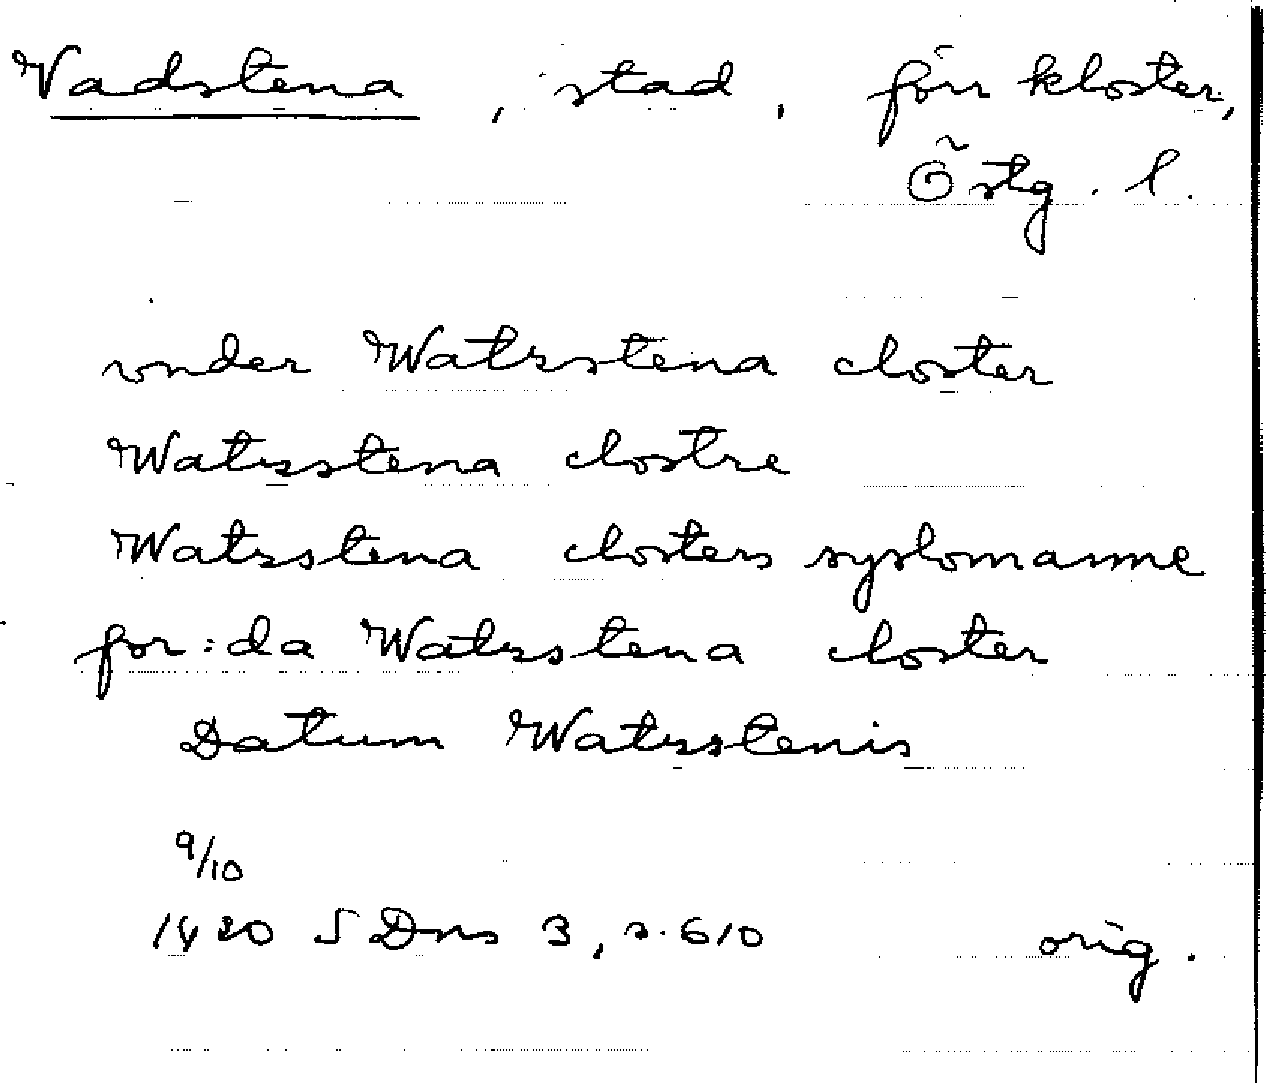 Vadstena, stad, förr kloster,
Östg. l.
vnder Watzstena closter
Watzsstena clostre
Watzstena closters syslomanne
for:da Watzstena closter
Datum Watzstenis
9/10
1420 SDns 3, s. 610 orig.